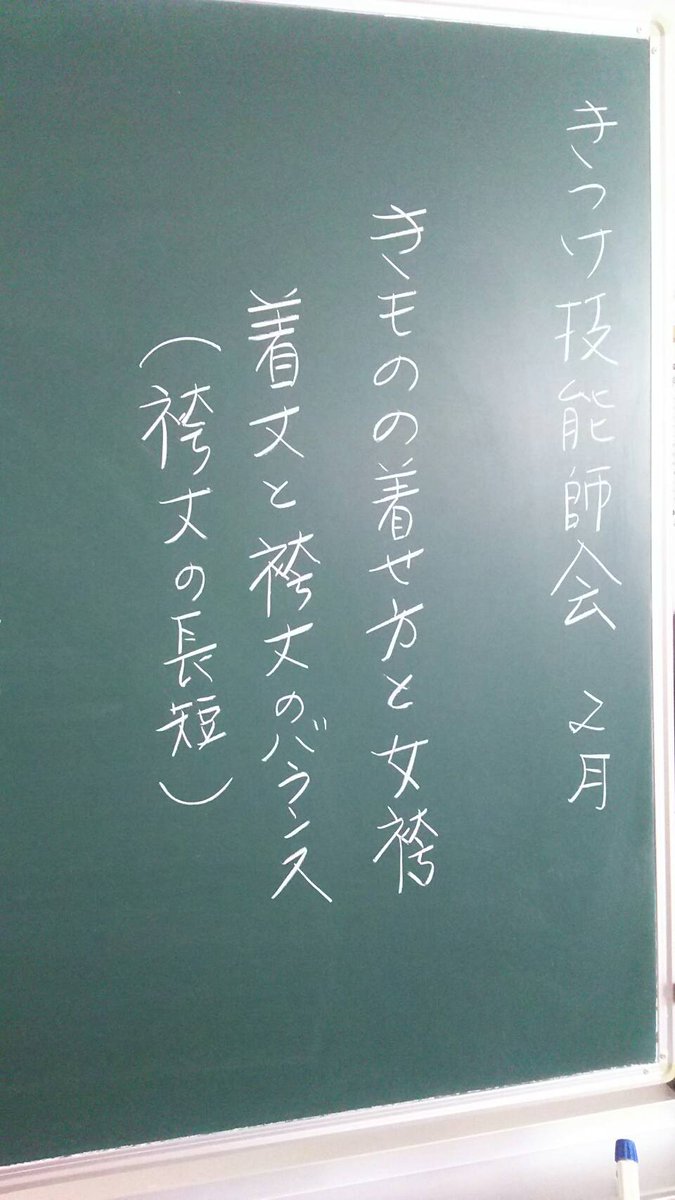 きつけ技能師会 2月
きものの着せ方と女袴
着丈と袴丈のバランス
(袴丈の長短)